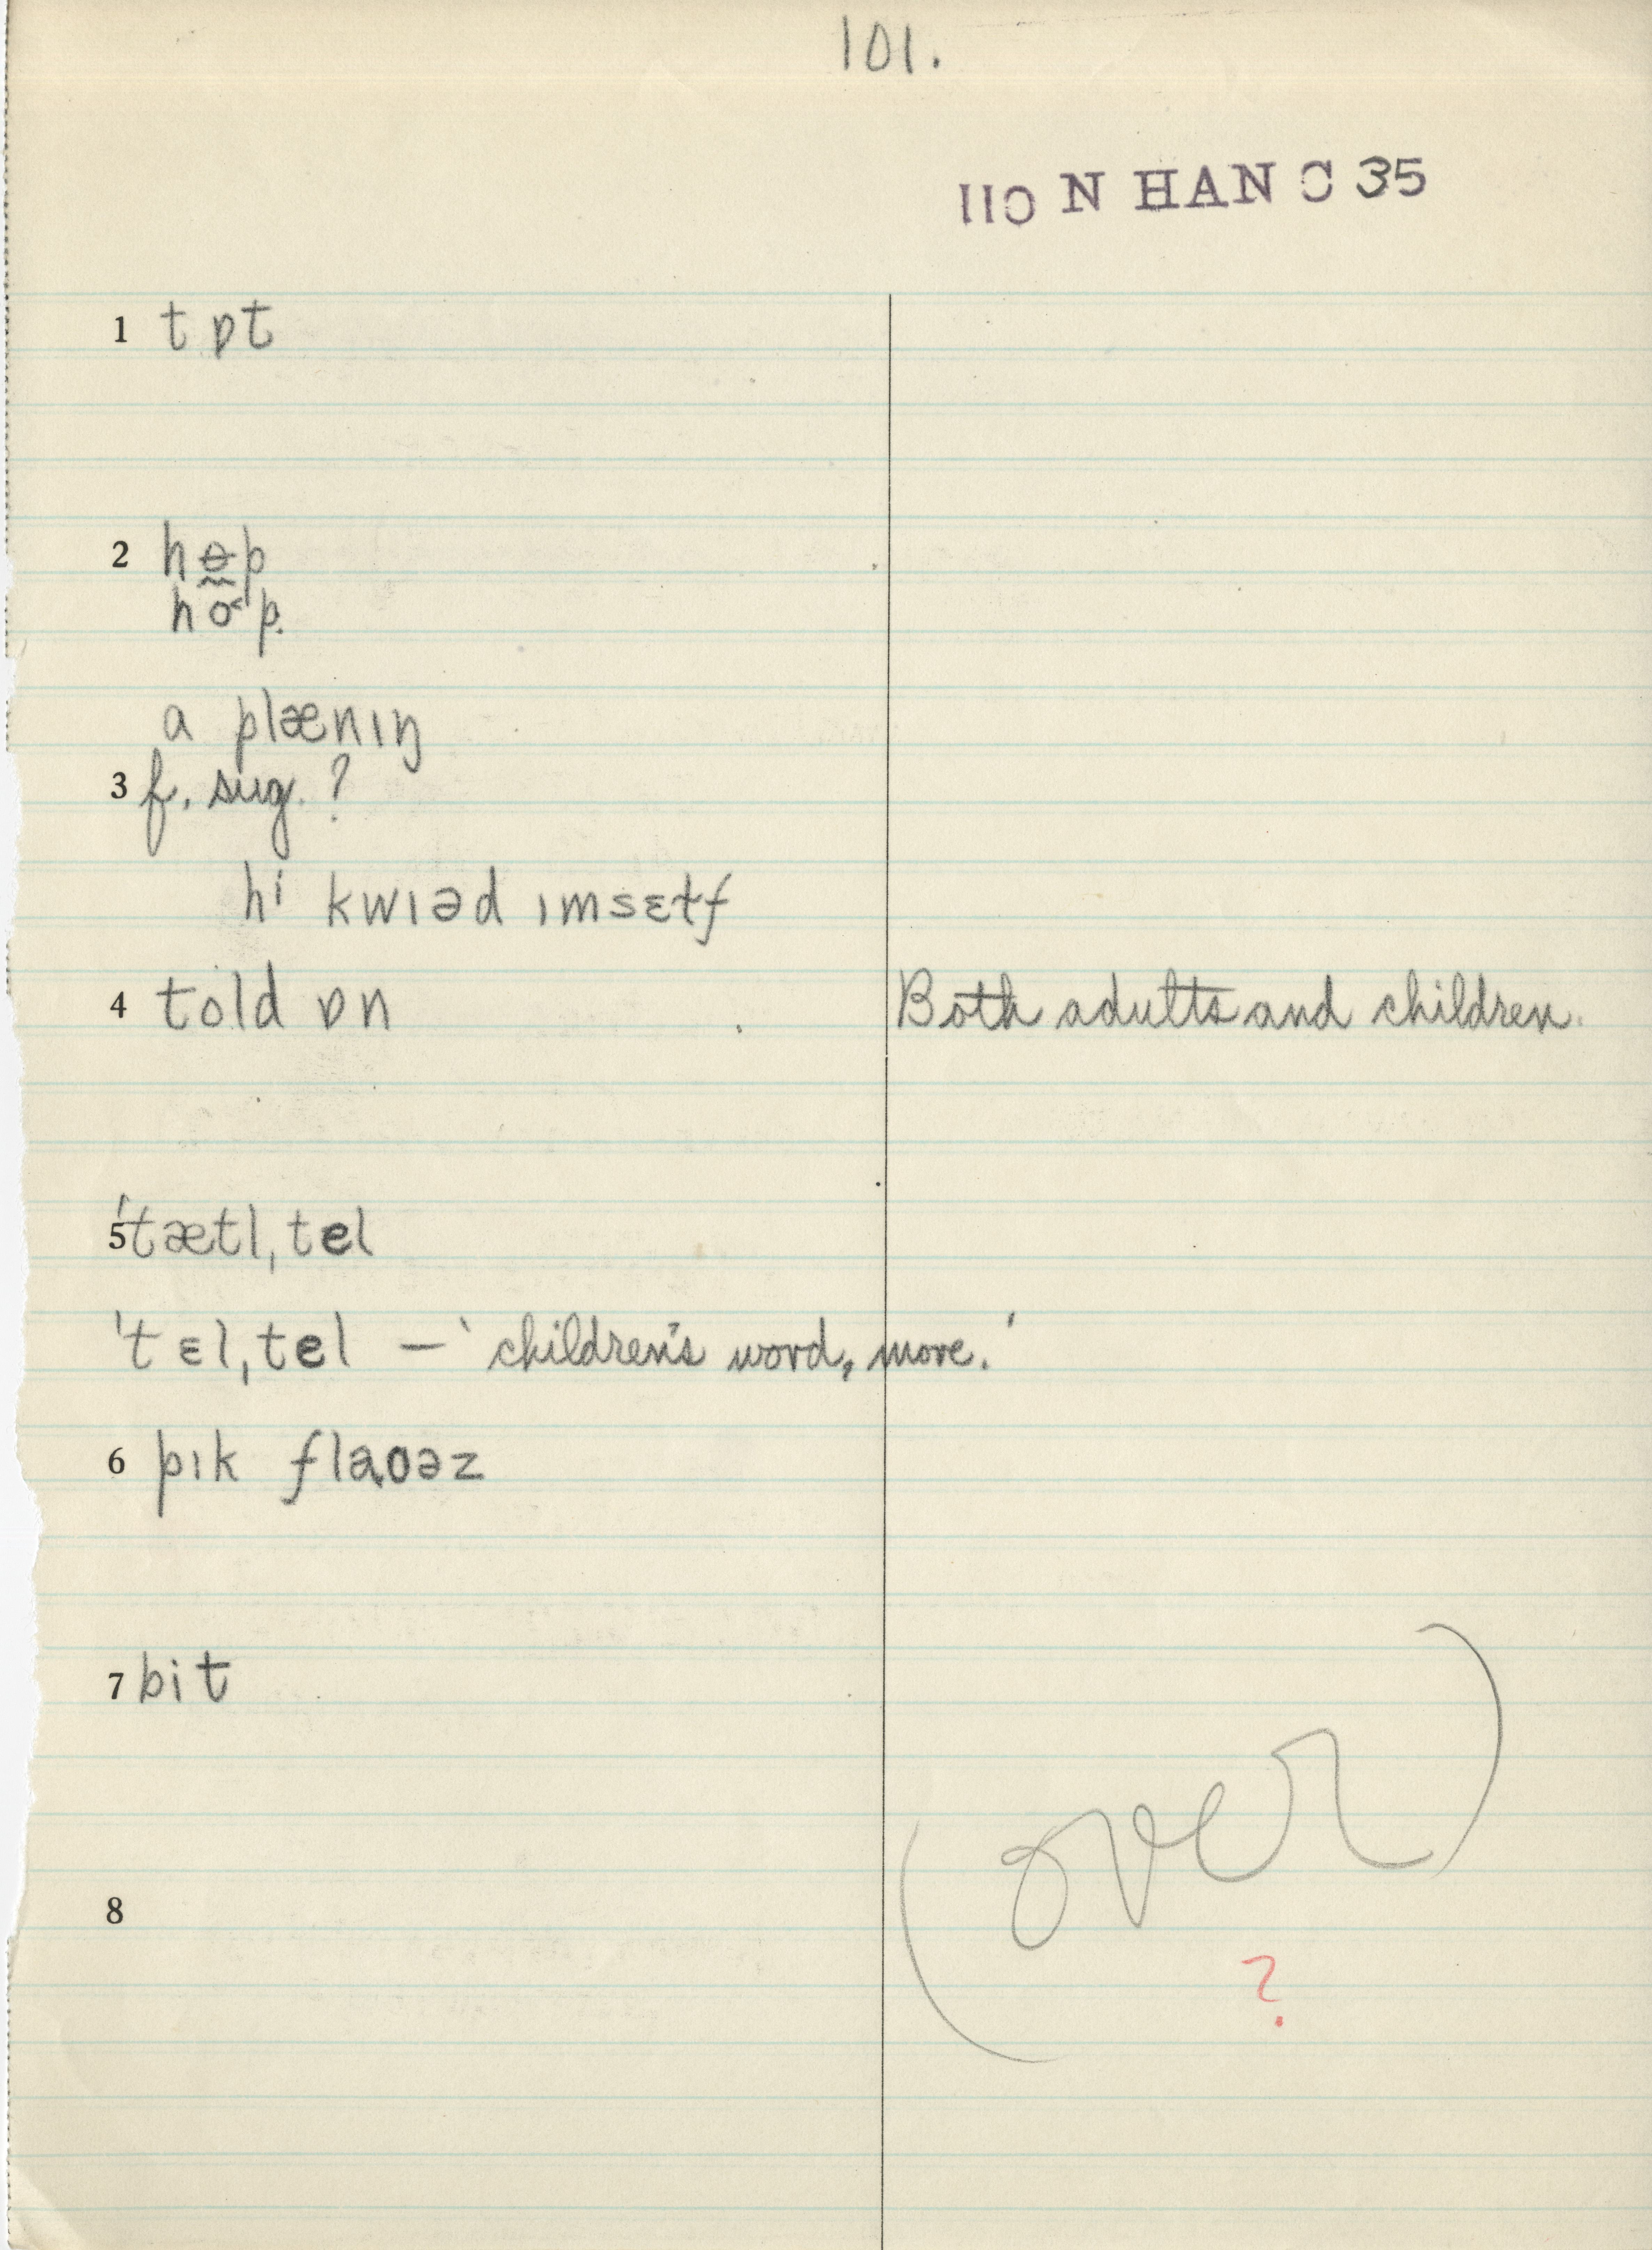 101.
110 N HAN C 35
1 tɒt
2 hɵp
ho˂p.
a plænɪŋ
3 f. sug. ?
hi kwɪəd ɪmsɛɫf
4 told ɒn Both adults and children.
5 'tætl, tel
'tɛl, tel — 'children's word, more.'
6 pɪk flaoəz
7 bit
(over)
8
?